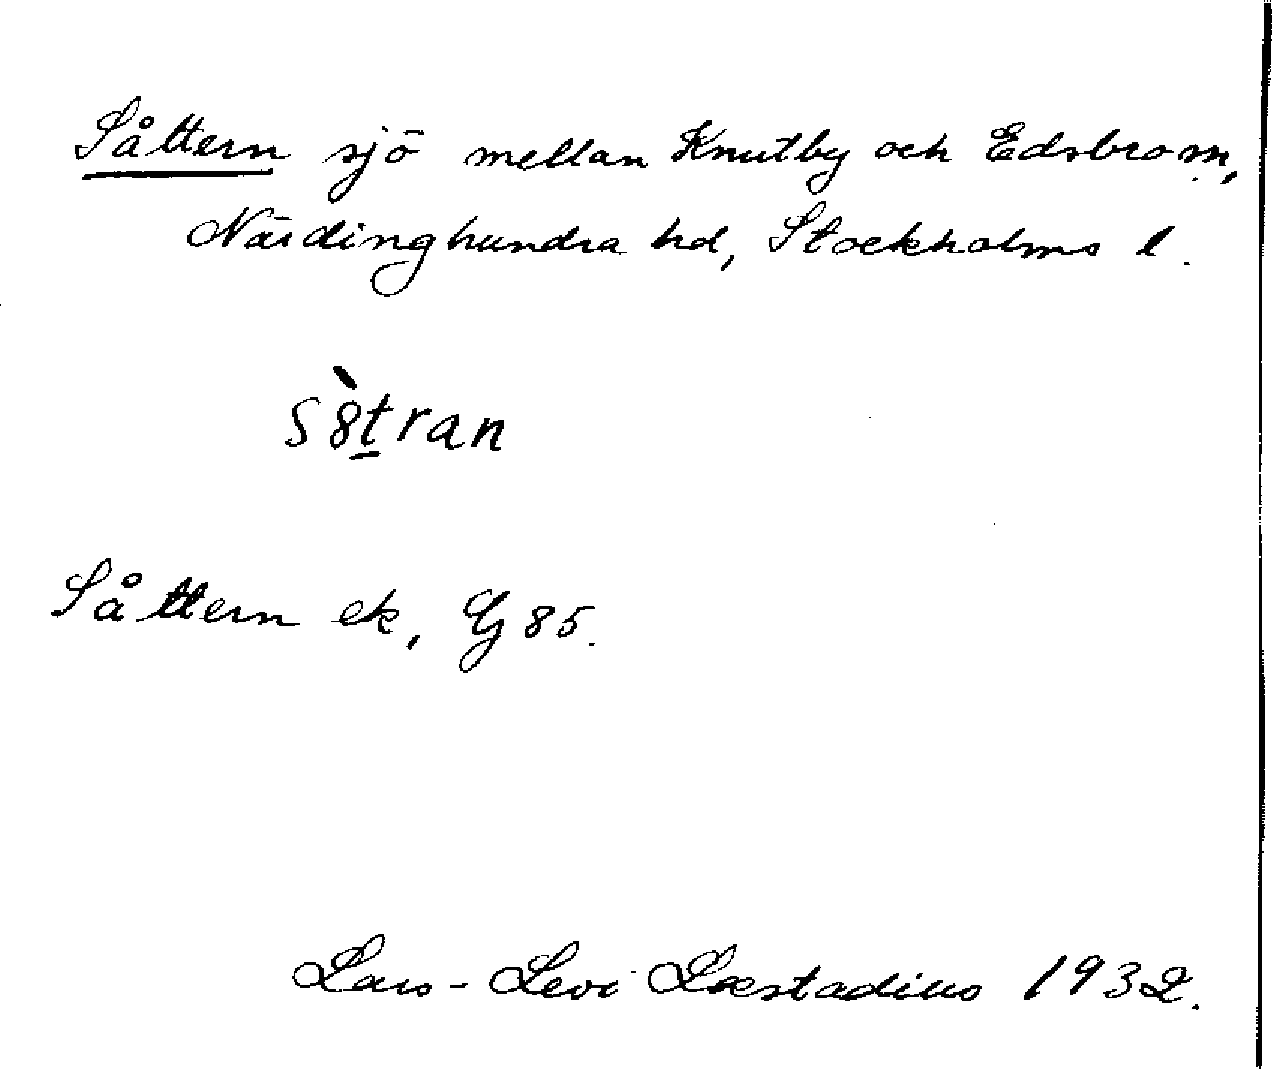 Såttern sjö mellan Knutby och Edsbro sn,
Närdinghundra hd, Stockholms l.
s8̀t̠ran
Såttern ek, G 85.
Lars-Levi Læstadius 1932.